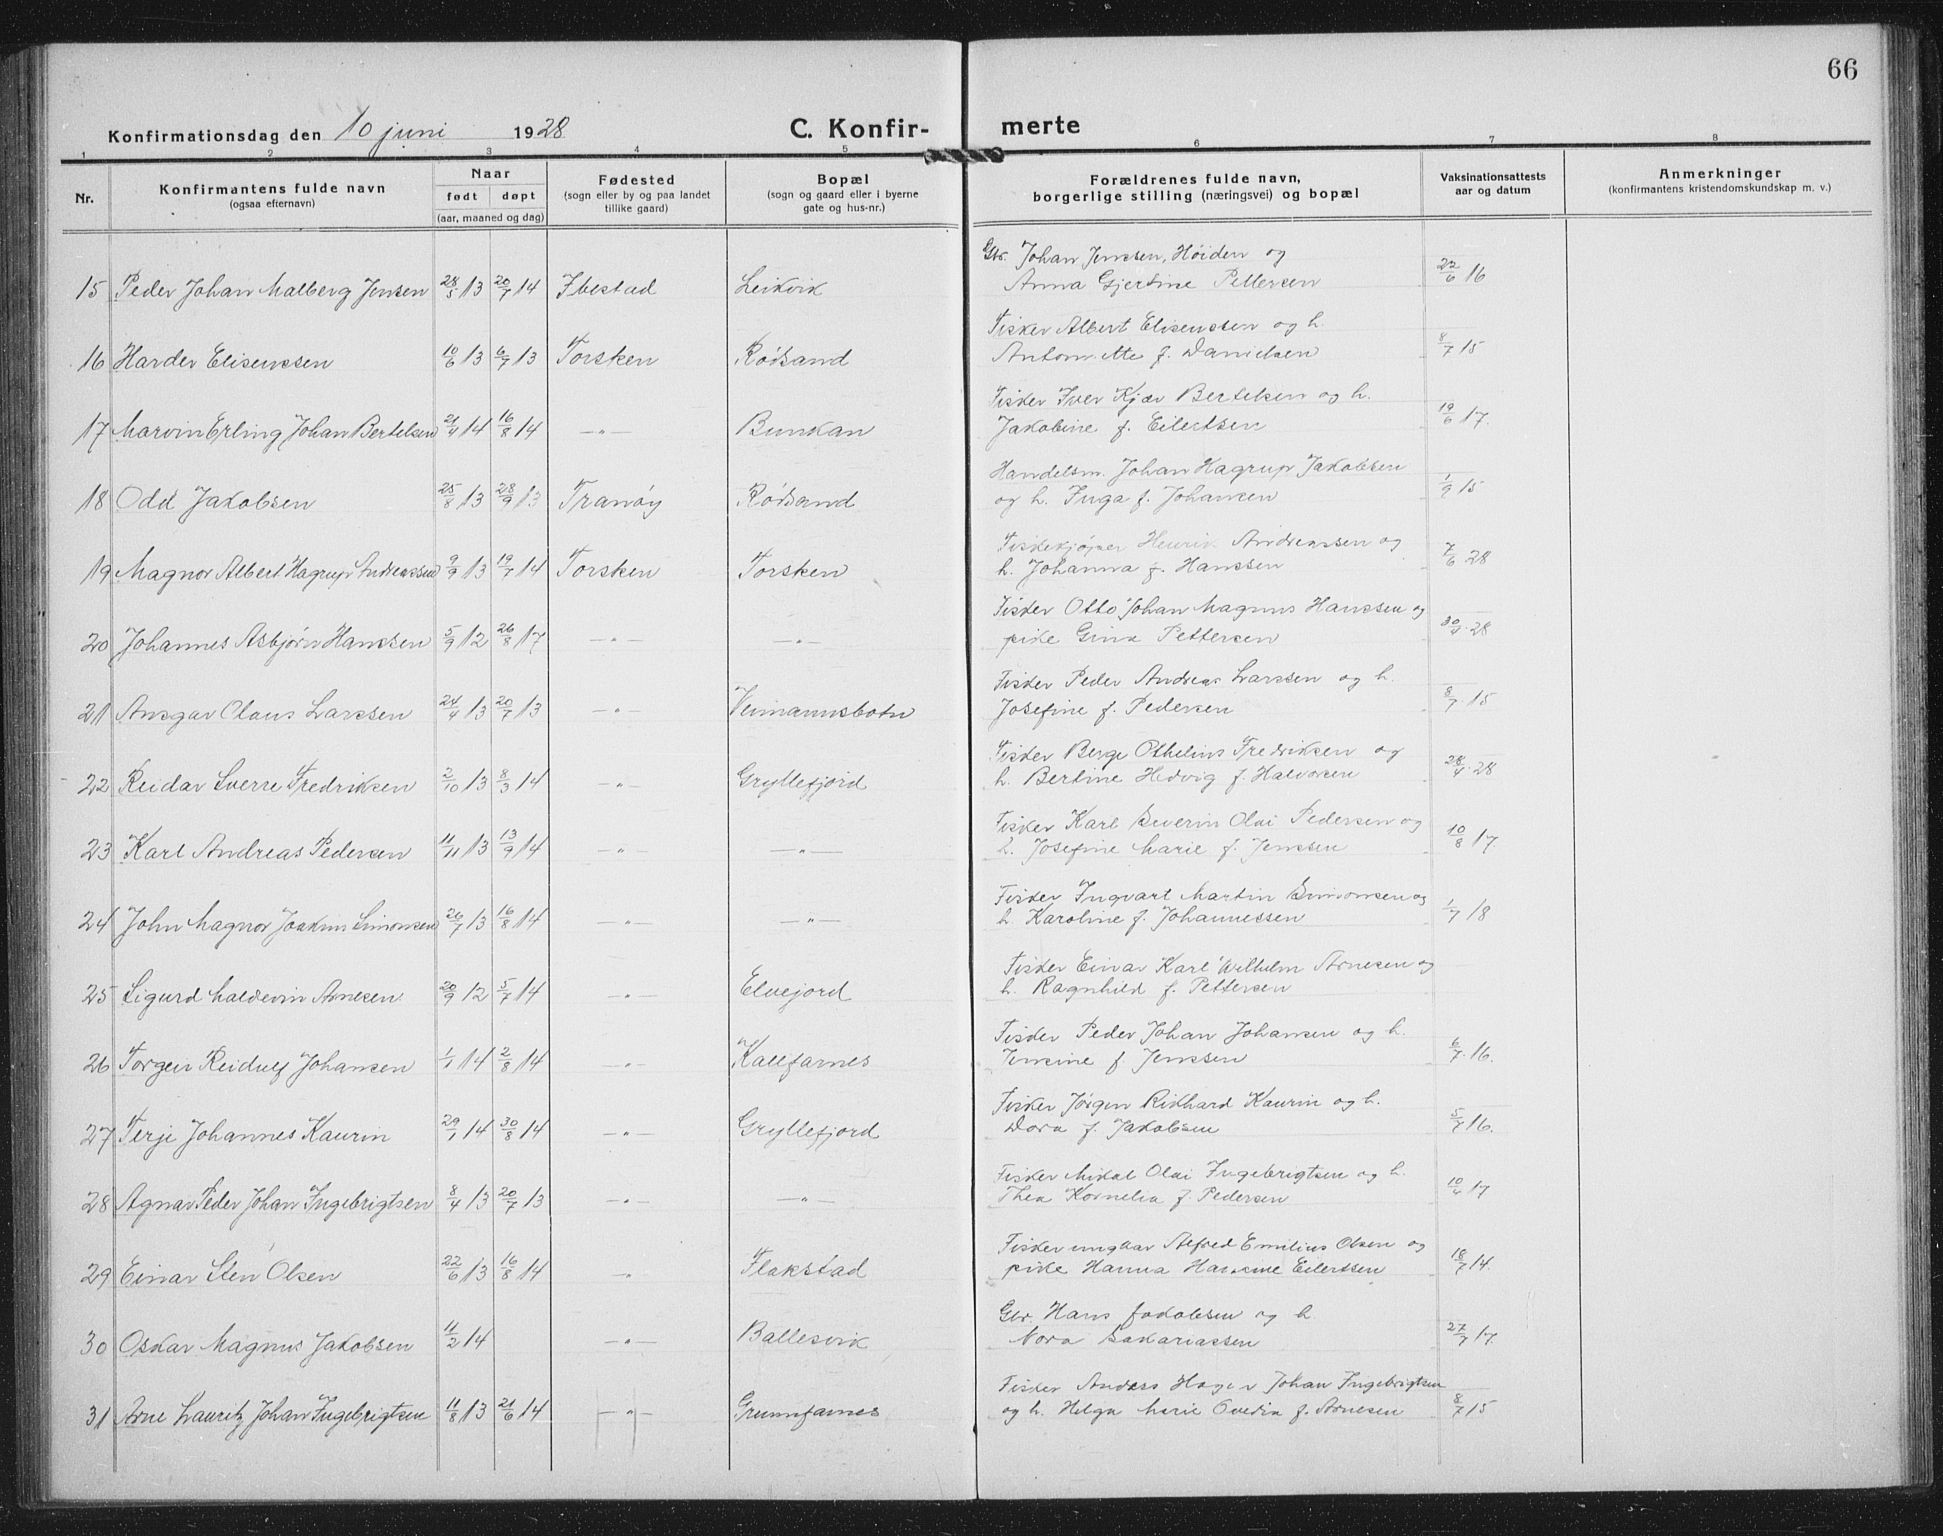 66
Konfirmationsdag den 10 juni 1928 C. Konfir- merte
1 2 3 4 5 6 7 8
Nr. Konfirmantens fulde navn (ogsaa efternavn) Naar født døpt (aar, maaned og dag) Fødested (sogn eller by og paa landet tillike gaard) Bopæl (sogn og gaard eller i byerne gate og hus-nr.) Forældrenes fulde navn, borgerlige stilling (næringsvei) og bopæl Vaksinationsattests aar og datum Anmerkninger (konfirmantens kristendomskundskap m. v.)
Gbr. Johan Jenssen, Høiden og
15 Peder Johan Malberg Jensen 28/5 13 20/7 14 Ibestad Leikvik Anna Gjertine Pettersen 22/6 16
Fisker Albert Elisenssen og h.
16 Harder Elisenssen 10/6 13 6/7 13 Torsken Rødsand Antonette f. Danielsen 8/7 15
Fisker Iver Kjær Bertelsen og h.
17 Marvin Erling Johan Bertelsen 21/4 14 16/8 14 —"— Bunkan Jakobine f. Eilertsen 19/6 17.
Handelsm. Johan Hagrup Jakobsen
18 Odd Jakobsen 25/8 13 28/9 13 Tranøy Rødsand og h. Inga f. Johansen 1/9 15
Fiskekjøper Henrik Andreassen og
19 Magnor Albert Hagrup Andreassen 9/9 13 19/7 14 Torsken Torsken h. Johanna f. Hanssen 7/6 28
Fisker Otto Johan Magnus Hanssen og
20 Johannes Asbjørn Hanssen 5/9 12 26/8 17 —"— —"— pike Gina Pettersen 30/4 28
Fisker Peder Andreas Larssen og h.
21 Ansgar Olaus Larssen 24/4 13 20/7 13 —"— Veimannsbotn Josefine f. Pedersen 8/7 15
Fisker Berge Othelius Fredriksen og
22 Reidar Sverre Fredriksen 2/10 13 8/3 14 —"— Gryllefjord h. Bertine Hedvig f. Halvorsen 28/4 28
Fisker Karl Severin Olai Pedersen og
23 Karl Andreas Pedersen 11/11 13 13/9 14 —"— —"— h. Josefine Marie f. Jenssen 10/8 17
Fisker Ingvart Martin Simonsen og
24 John Magnor Joakim Simonsen 26/7 13 16/8 14 —"— —"— h. Karoline f. Johannessen 1/7 18
Fisker Einar Karl Wilhelm Arnesen og
25 Sigurd Haldevin Arnesen 20/9 12 5/7 14 —"— Elvejord h. Ragnhild f. Pettersen
Fisker Peder Johan Johansen og h.
26 Torgeir Reidulf Johansen 1/1 14 2/8 14 —"— Kalfarnes Jensine f. Jenssen 6/7 16.
Fisker Jørgen Rikhard Kaurin og h.
27 Terje Johannes Kaurin 29/1 14 30/8 14 —"— Gryllefjord Dora f. Jakobsen 5/7 16.
Fisker Mikal Olai Ingebrigtsen og h.
28 Agnar Peder Johan Ingebrigtsen 8/4 13 20/7 13 —"— —"— Thea Kornelia f. Pedersen 10/6 17
Fisker ungkar Alfred Emilius Olsen og
29 Einar Sten Olsen 22/6 13 16/8 14 —"— Flakstad pike Hanna Eilertsen 18/7 14.
Gbr. Hans Jakobsen og h.
30 Oskar Magnus Jakobsen 11/2 14 —"— Ballesvik Nora Sakariassen 27/7 17.
Fisker Anders Hager Johan Ingebrigtsen
31 Arne Lauritz Johan Ingebrigtsen 11/8 13 21/6 14 —"— Grunnfarnes og h. Helga Marie Ovedia f. Arnesen 8/7 15